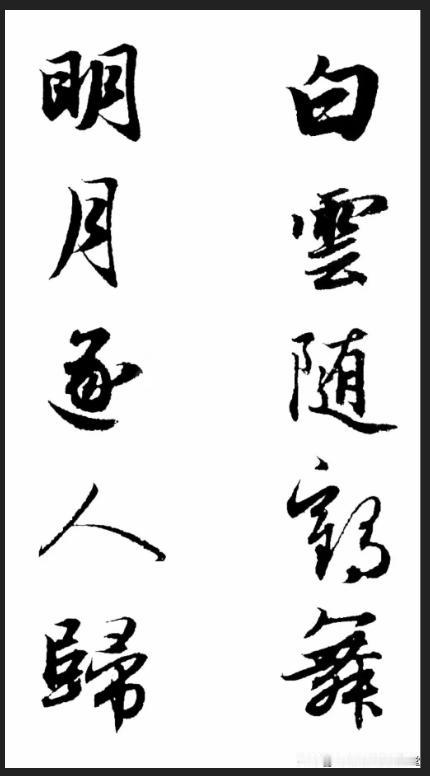 白雲随鶴舞
明月逐人歸